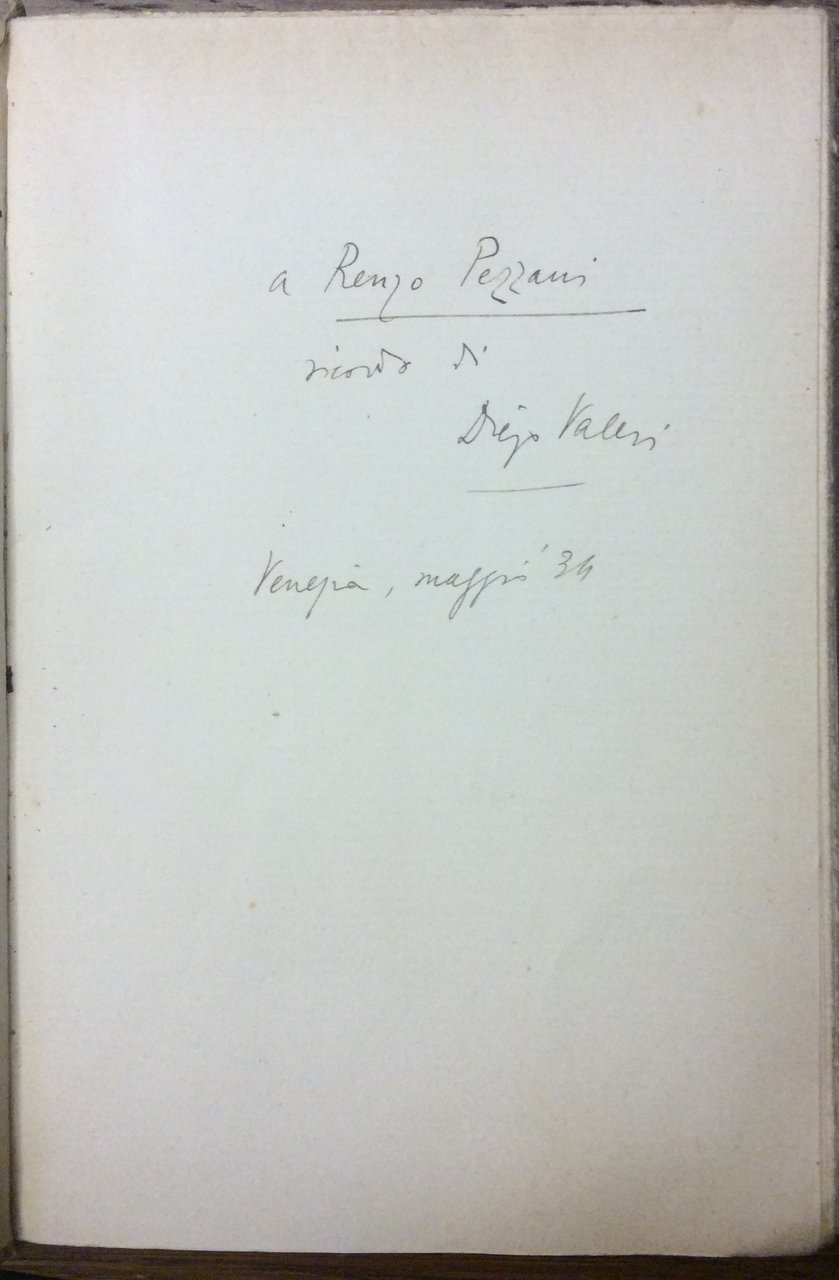 a Renzo Pezzani
ricordo di
Diego Valeri
Venezia, maggio '34